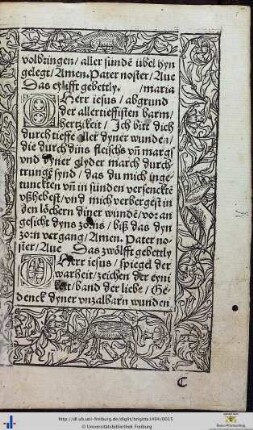 volbringen/aller sundē übel hyn
gelegt/Amen. Pater noster/Aue
Das eylifft gebettly. /maria
O Herr iesus/abgrund
der allertieffisten barm/
hertzikeit/Ich bitt dich
durch tieffe aller dyner wunden/
die durch dins fleischs vn̄ margs
vnd dyner glyder march durch
trungē synd/das du mich inge
tunckten vn̄ in sunden versencktē
vßhebest/vnd mich verbergest in
den löchern diner wundē/vor an
gesicht dyns zorns/biß das dyn
zorn vergang/Amen. Pater no-
ster/Aue Das zwölfft gebettly
O Herr iesus/spiegel der
warheit/zeichen der eyni
keit/band der liebe/Ge
denck dyner vnzalbarn wunden
C
http://dl.ub.uni-freiburg.de/diglit/brigitta1494/0013
© Universitätsbibliothek Freiburg